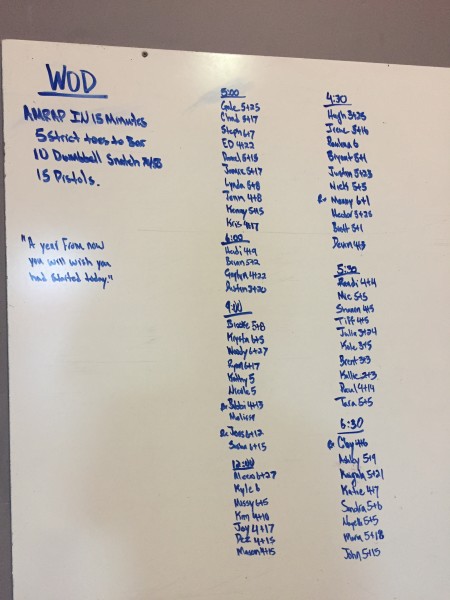 WOD
AMRAP IN 15 Minutes
5 Strict toes to Bar
10 Dumbbell Snatch
15 Pistols.
"A year From now
you will wish you
had started today."
5:00
Gale 5+25
Chad 5+17
Steph 6+7
ED 4+22
Daniel 5+18
5+17
Lynda 5+8
4+8
Kenny 5+15
Kris 4+17
6:00
Heidi 4+9
5+2
4+22
3+20
9:00
Brooke 5+8
Krysta 6+5
Woody 6+27
Ryan 6+17
Kathy 5
Nicole 5
Rx Bobbi 4+13
Melissa
Rx Jess 6+12
6+15
12:00
6+27
Kyle 6
Missy 6+5
Kim 4+10
Jay 4+17
Dee 4+15
Mason 4+15
4:30
Hugh 3+25
Irene 5+16
6
Bryant 5+1
Justin 5+23
Nick 5+5
Rx Manny 6+1
Hector 3+25
Brett 5+1
Devin 4+3
5:30
4+4
5+5
4+5
Tiff 4+5
Julie 3+24
Kale 3+5
Brent 3+3
Kallie 3+3
Paul 4+14
Tara 5+5
6:30
Rx Clay 4+6
Ashley 5+9
5+21
Katie 4+7
Sandra 5+6
5+5
Maria 5+18
John 5+15